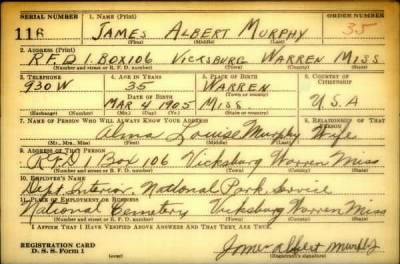 SERIAL NUMBER 1. NAME (Print) ORDER NUMBER
116 JAMES ALBERT MURPHY 35
(First) (Middle) (Last)
2. ADDRESS (Print)
R.F.D 1. BOX 106 VICKSBURG WARREN MISS
(Number and street or R. F. D. number) (Town) (County) (State)
3. TELEPHONE 4. AGE IN YEARS 5. PLACE OF BIRTH 6. COUNTRY OF CITIZENSHIP
930W 35 WARREN
DATE OF BIRTH (Town or county)
MAR 4 1905 MISS U.S.A
(Exchange) (Number) (Mo.) (Day) (Yr.) (State or country)
7. NAME OF PERSON WHO WILL ALWAYS KNOW YOUR ADDRESS 8. RELATIONSHIP OF THAT PERSON
Alma Louise Murphy Wife
(Mr., Mrs., Miss) (First) (Middle) (Last)
9. ADDRESS OF THAT PERSON
R.F.D 1 Box 106 Vicksburg Warren Miss
(Number and street or R. F. D. number) (Town) (County) (State)
10. EMPLOYER'S NAME
Dept Interior. National Park Service
11. PLACE OF EMPLOYMENT OR BUSINESS
National Cemetery Vicksburg Warren Miss
(Number and street or R. F. D. number) (Town) (County) (State)
I AFFIRM THAT I HAVE VERIFIED ABOVE ANSWERS AND THAT THEY ARE TRUE.
REGISTRATION CARD
D. S. S. Form 1
James albert murphy
(over) (Registrant's signature)